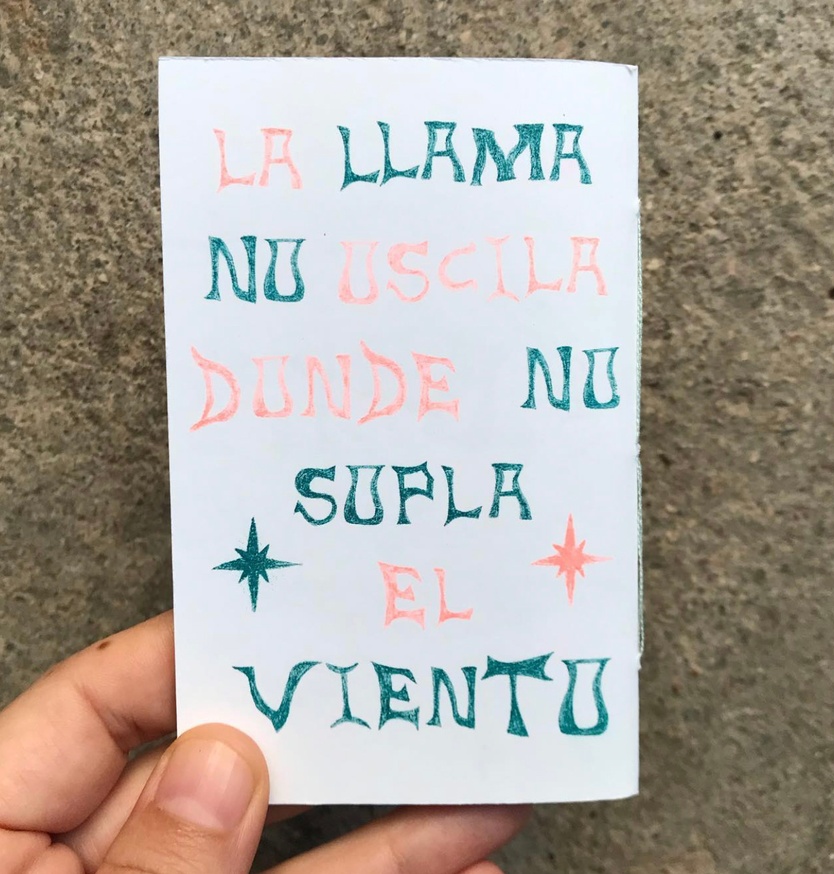 LA LLAMA
NO OSCILA
DONDE NO
SOPLA
EL
VIENTO